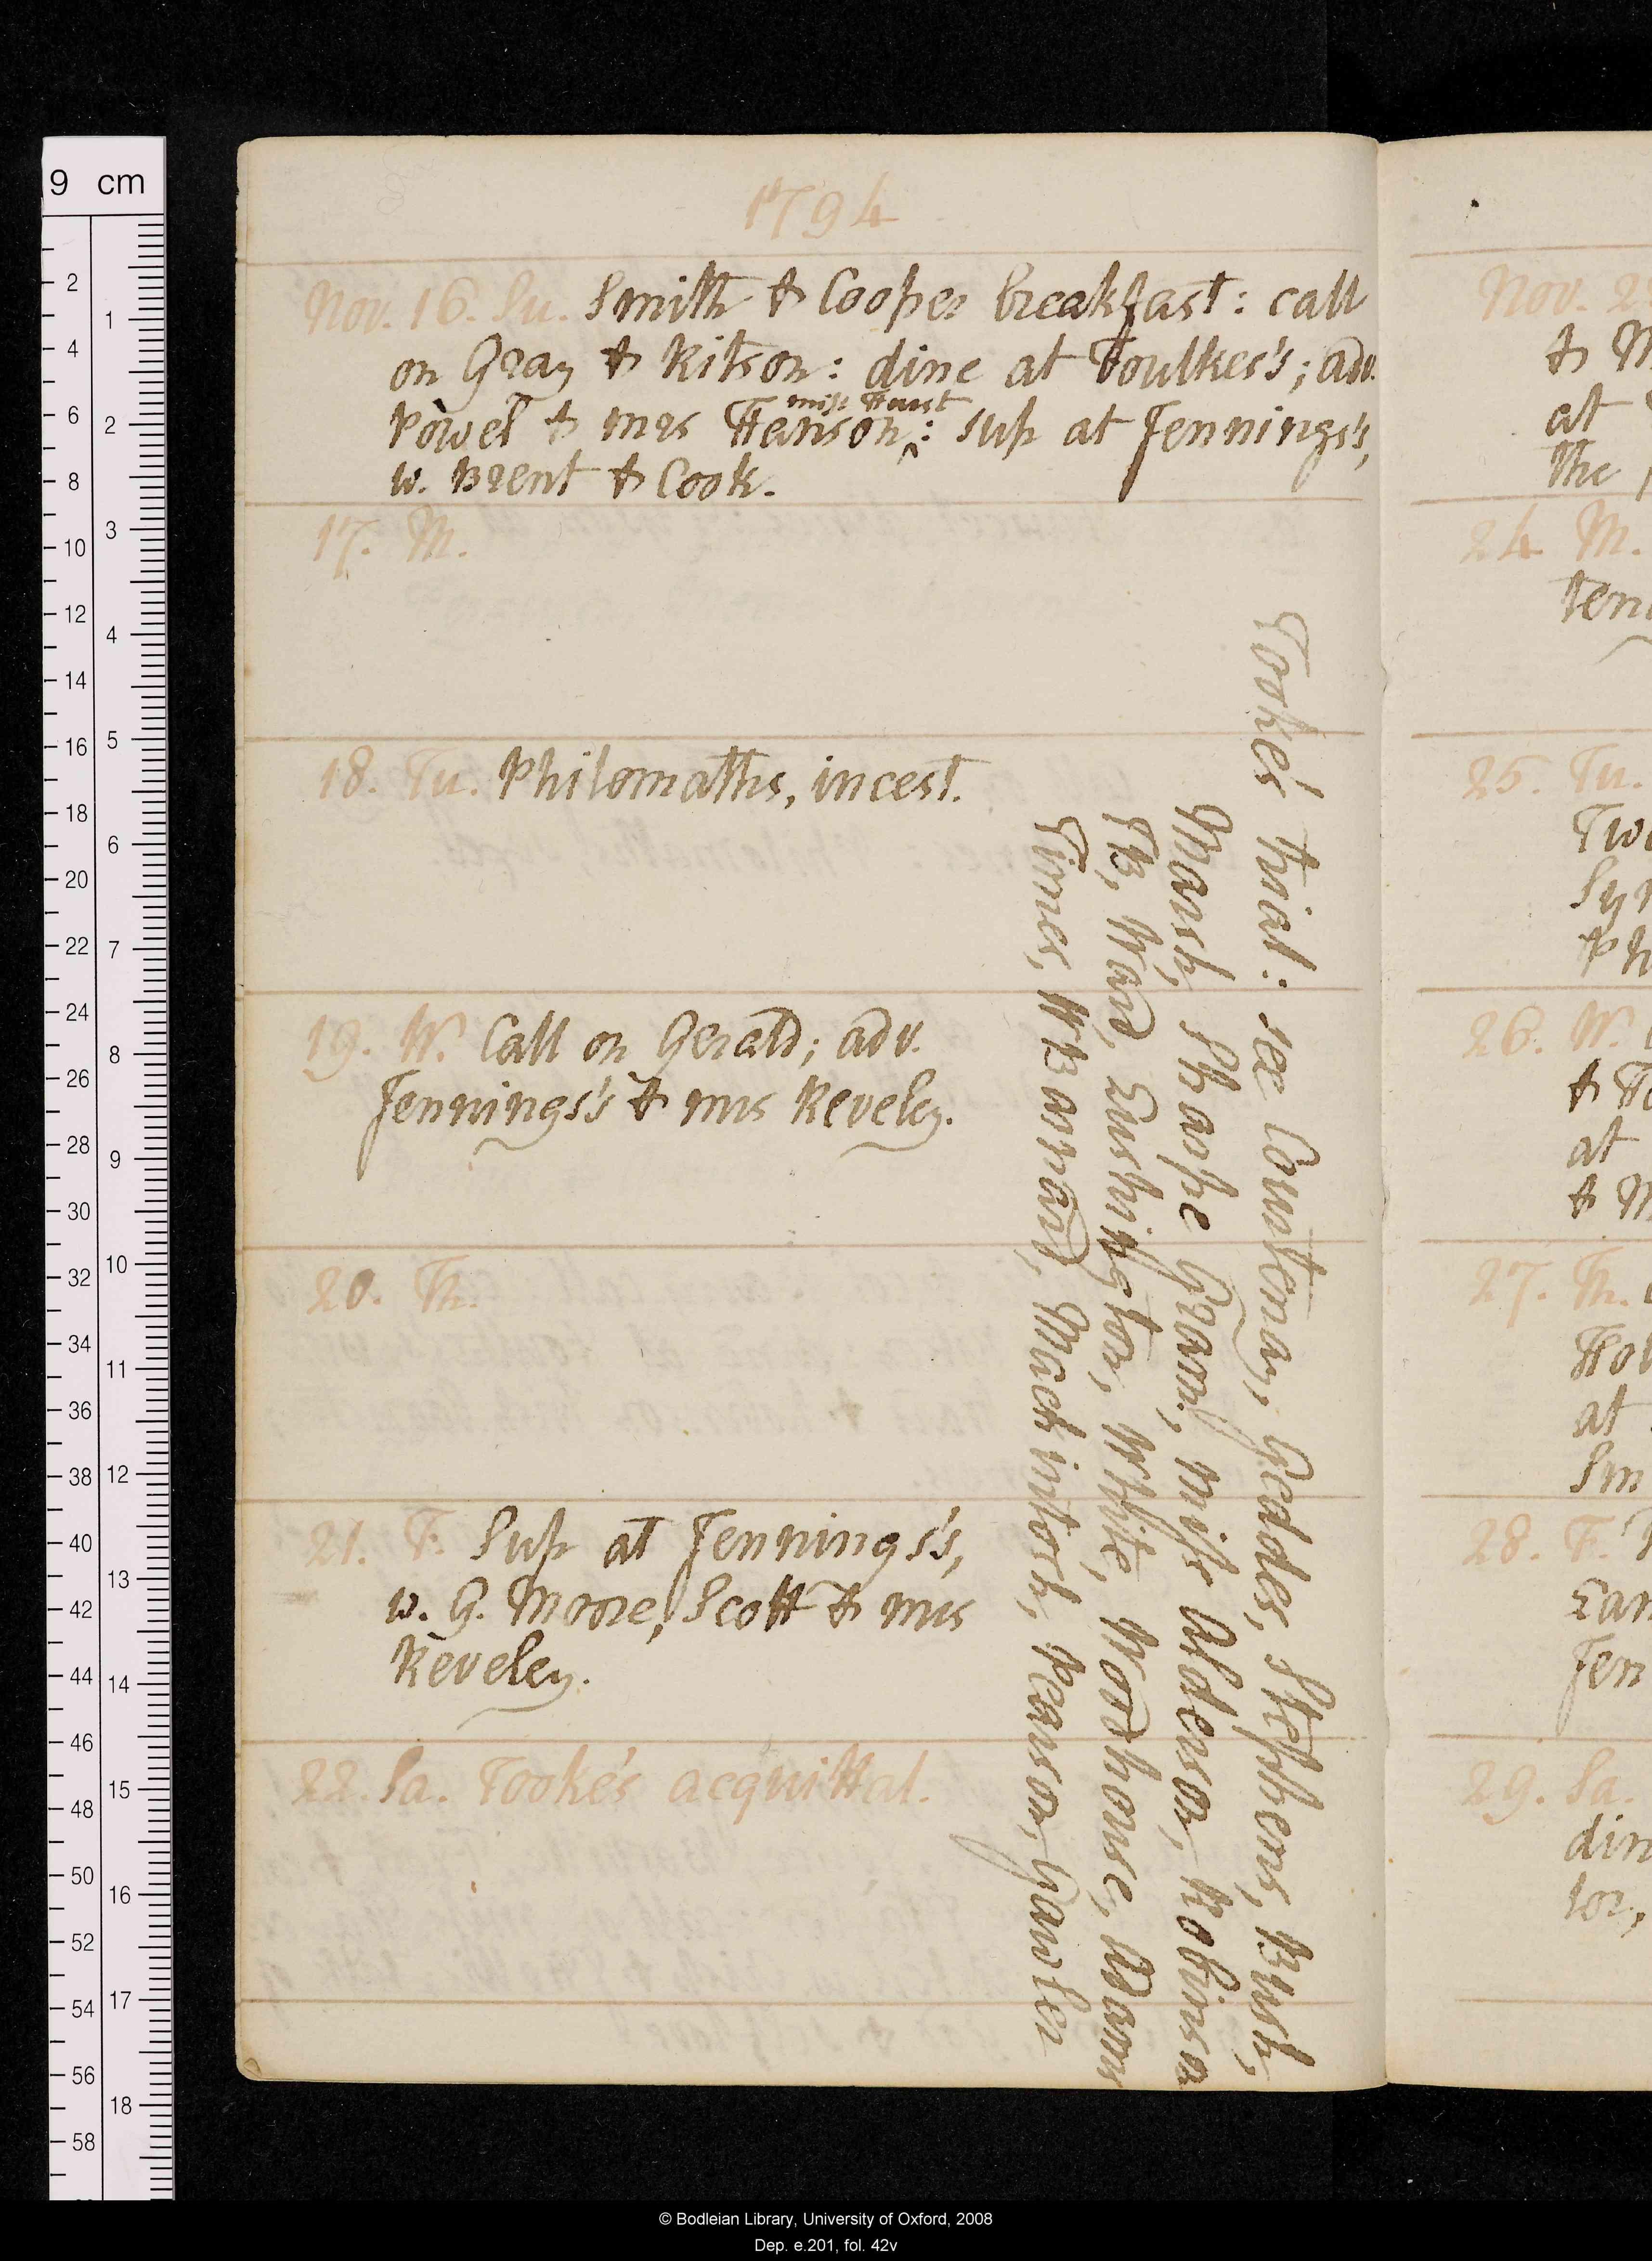 1794
Nov. 16. Su. Smith & Cooper breakfast: call
on Gray & Ritson: dine at Foulkes's; adv.
Powel & mrs Hanson, miss Hurst: sup at Jennings's,
w. Brent & Cook.
17. M.
18. Tu. Philomaths, incest.
19. W. Call on Gerald; adv.
Jennings's & mrs Reveley.
20. Th.
21. F. Sup at Jennings's,
w. G. Moore, Scott & mrs
Reveley.
22. Sa. Tooke's acquittal.
Tooke's trial: see Courtenay, Geddes, Stephens, Bush,
Marsh, Sharpe Gram!, miss Alderson, Robinson
PB, Ward, Lushington, White, Woodhouse, Adams
Times, W Barnard, Mackintosh, Pearson, Gawler
Nov. 2
& M
at
the
24. M.
Jen
25. Tu.
Tw
Syn
Ph
26. W.
& H
at
& M
27. Th.
Hol
at
Sm
28. F.
Ear
Jen
29. Sa.
din
tor,
9 cm
2
4
6
8
10
12
14
16
18
20
22
24
26
28
30
32
34
36
38
40
42
44
46
48
50
52
54
56
58
1
2
3
4
5
6
7
8
9
10
11
12
13
14
15
16
17
18
© Bodleian Library, University of Oxford, 2008
Dep. e.201, fol. 42v